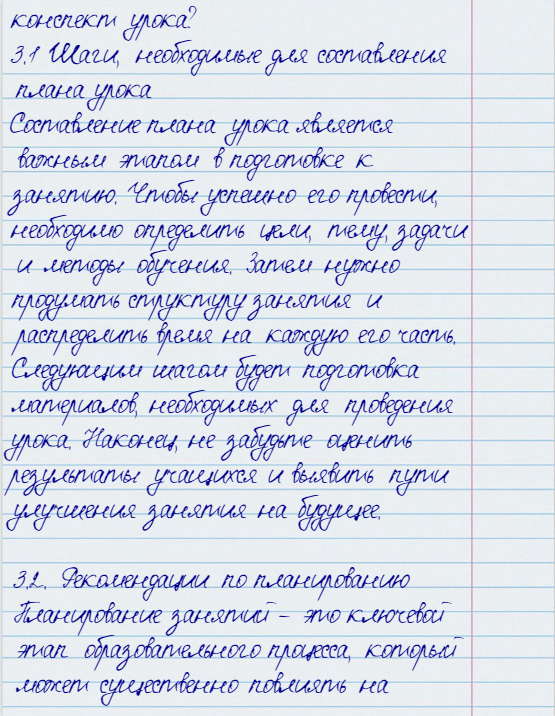 конспект урока?
3.1 Шаги, необходимые для составления
плана урока
Составление плана урока является
важным этапом в подготовке к
занятию. Чтобы успешно его провести,
необходимо определить цели, тему, задачи
и методы обучения. Затем нужно
продумать структуру занятия и
распределить время на каждую его часть.
Следующим шагом будет подготовка
материалов, необходимых для проведения
урока. Наконец, не забудьте оценить
результаты учащихся и выявить пути
улучшения занятия на будущее.
3.2. Рекомендации по планированию
Планирование занятий – это ключевой
этап образовательного процесса, который
может существенно повлиять на